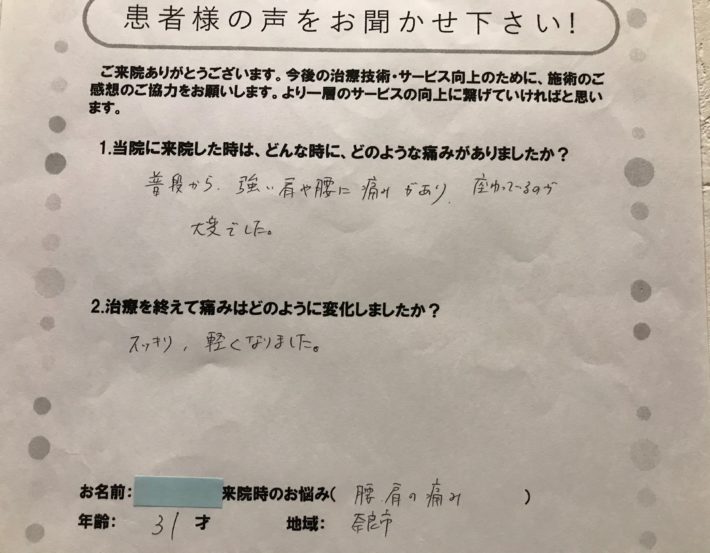 患者様の声をお聞かせ下さい!
ご来院ありがとうございます。今後の治療技術・サービス向上のために、施術のご
感想のご協力をお願いします。より一層のサービスの向上に繋げていければと思い
ます。
1.当院に来院した時は、どんな時に、どのような痛みがありましたか?
普段から、強い肩や腰に痛みがあり、座わっているのが
大変でした。
2.治療を終えて痛みはどのように変化しましたか?
スッキリ、軽くなりました。
お名前: 来院時のお悩み( 腰、肩の痛み )
年齢: 31 才 地域: 奈良市